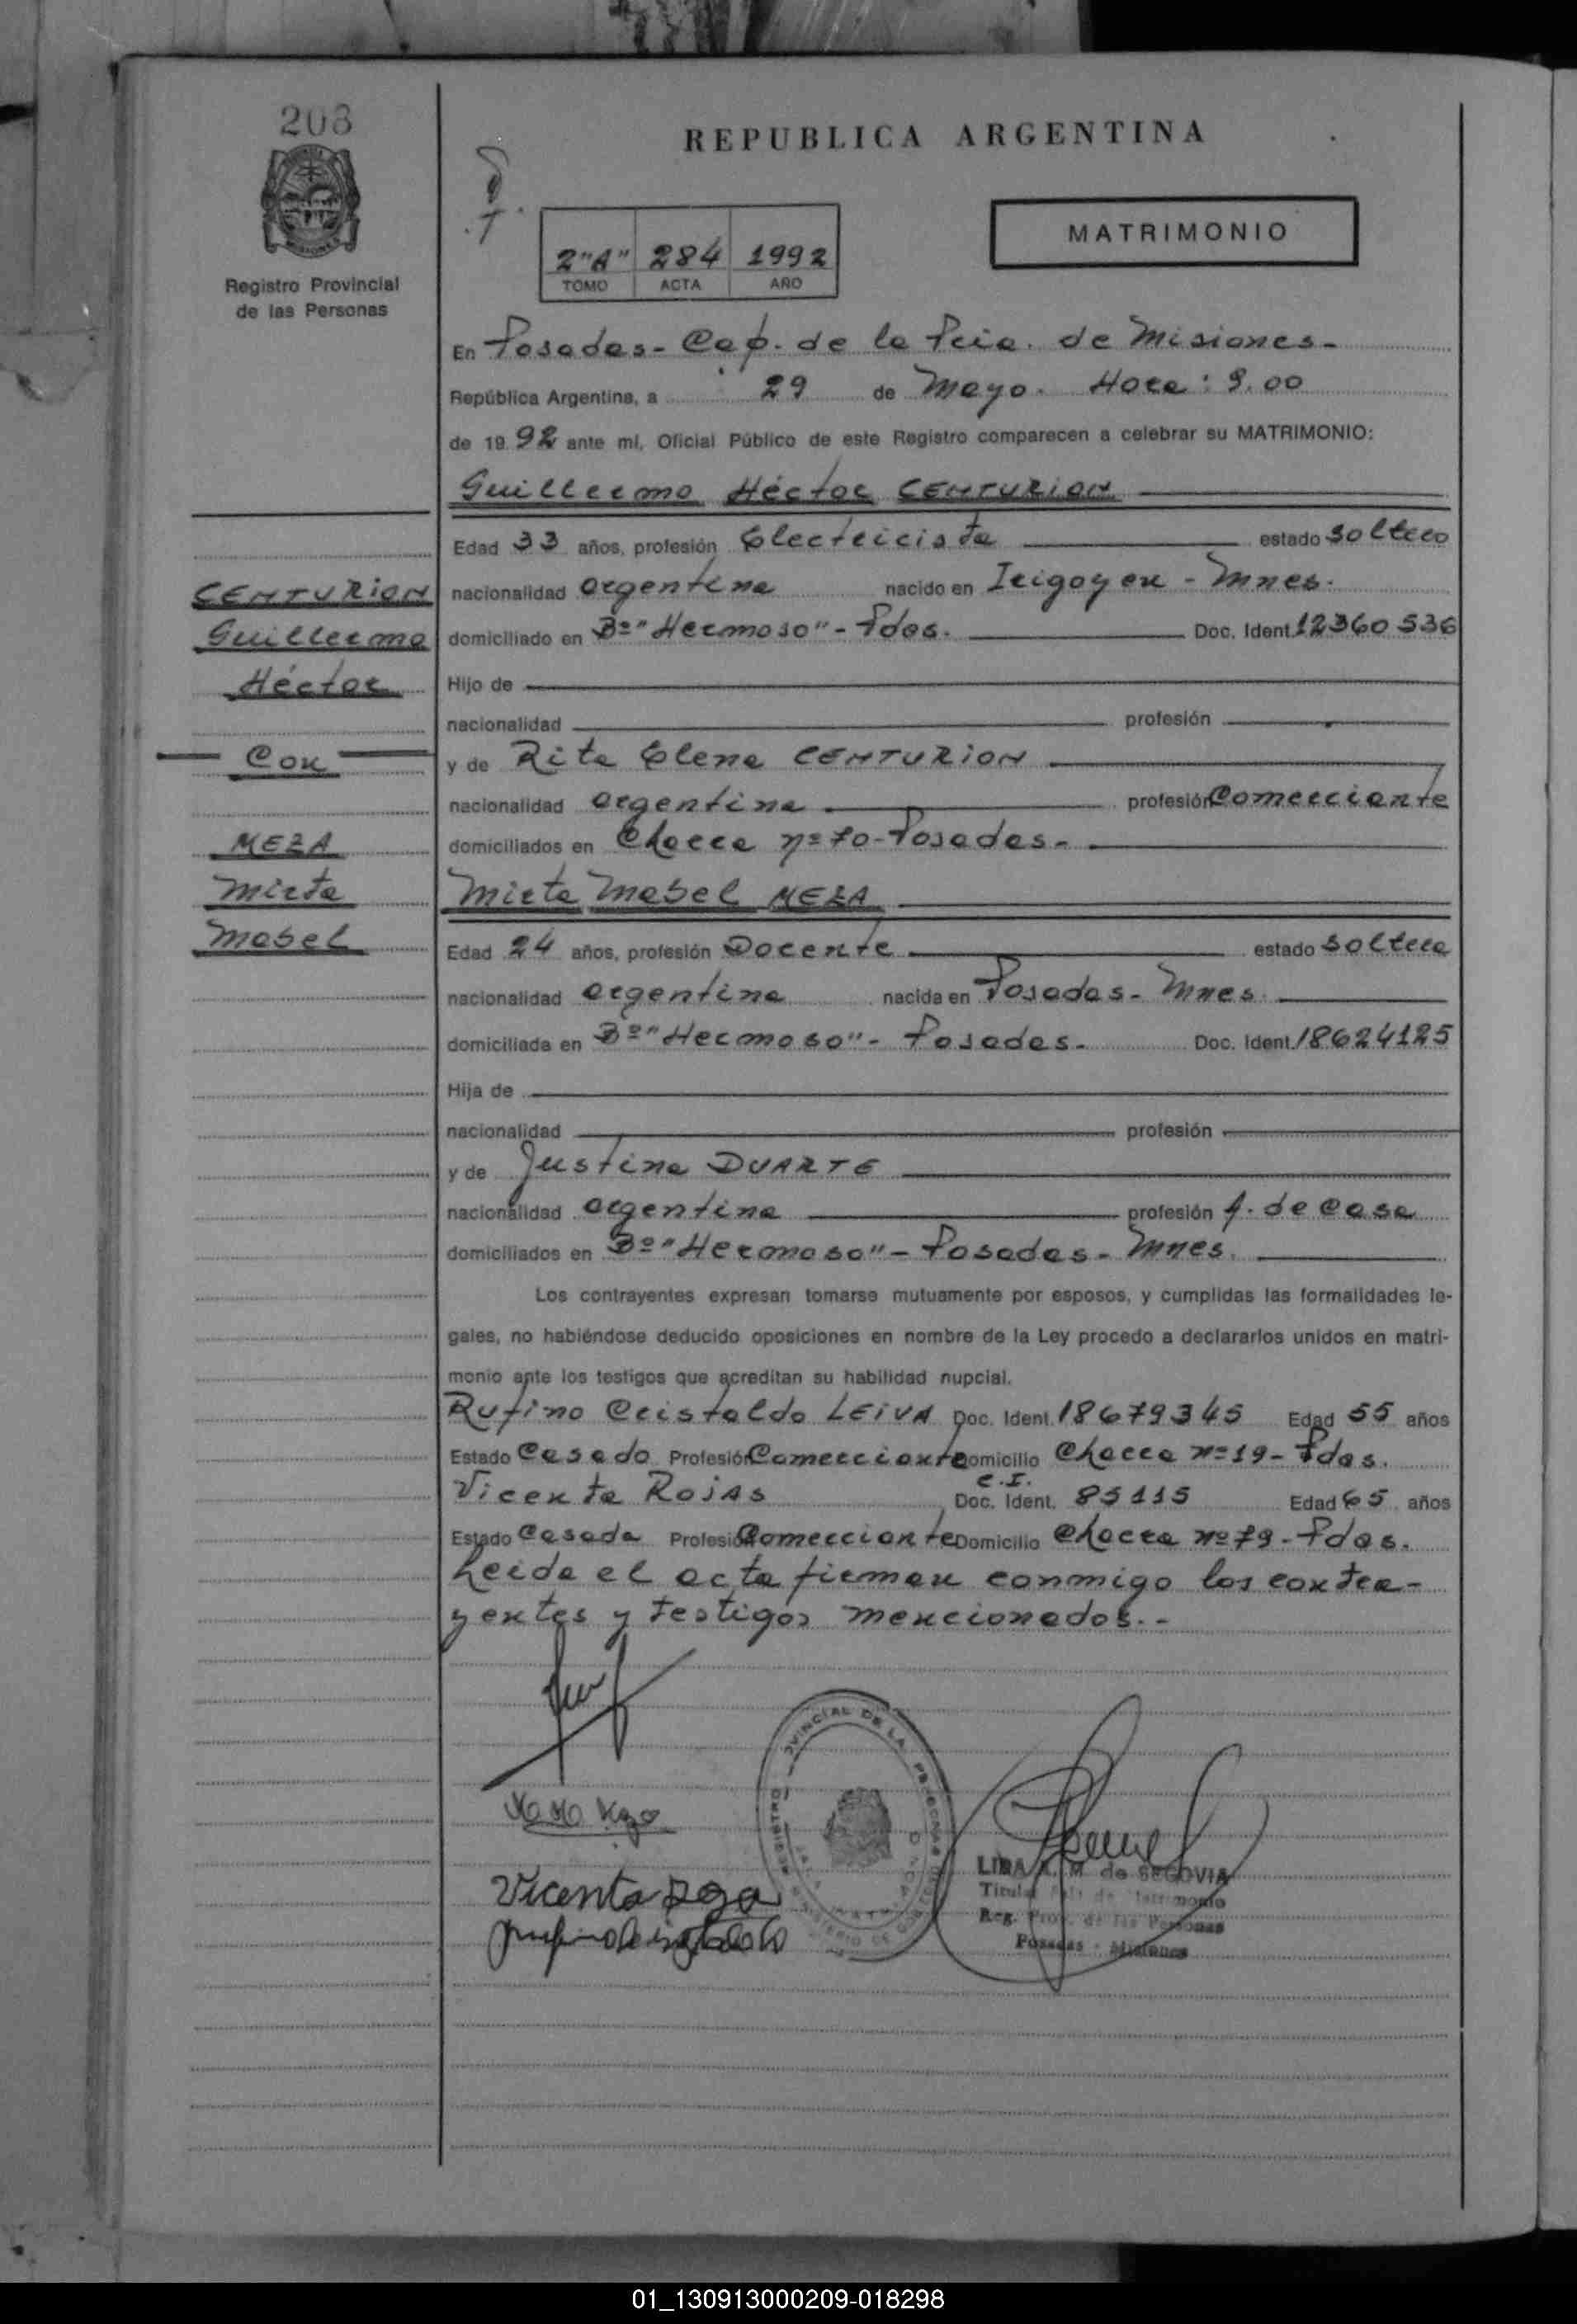 208
REPUBLICA ARGENTINA
MATRIMONIO
Registro Provincial
de las Personas
2"A" 284 1992
TOMO ACTA AÑO
En Posadas - Cap. de la Pcia. de Misiones -
República Argentina, a 29 de Mayo. Hora: 9.00
de 19 92 ante mí, Oficial Público de este Registro comparecen a celebrar su MATRIMONIO:
Guillermo Héctor CENTURION
Edad 33 años, profesión Electricista estado soltero
nacionalidad argentina nacido en Irigoyen - Mnes.
domiciliado en Bº "Hermoso" - Pdas. Doc. Ident. 12360536
Hijo de
nacionalidad profesión
y de Rita Elena CENTURION
nacionalidad argentina profesión Comerciante
domiciliados en Chacra nº 70 - Posadas -
Mirta Mabel MEZA
Edad 24 años, profesión Docente estado soltera
nacionalidad argentina nacida en Posadas - Mnes.
domiciliada en Bº "Hermoso" - Posadas - Doc. Ident. 18624125
Hija de
nacionalidad profesión
y de Justina DUARTE
nacionalidad argentina profesión A. de Casa
domiciliados en Bº "Hermoso" - Posadas - Mnes.
Los contrayentes expresan tomarse mutuamente por esposos, y cumplidas las formalidades le-
gales, no habiéndose deducido oposiciones en nombre de la Ley procedo a declararlos unidos en matri-
monio ante los testigos que acreditan su habilidad nupcial.
Rufino Cristaldo LEIVA Doc. Ident. 18679345 Edad 55 años
Estado Casado Profesión Comerciante Domicilio Chacra nº 19 - Pdas.
Vicenta ROJAS C.I. Doc. Ident. 85115 Edad 65 años
Estado Casada Profesión Comerciante Domicilio Chacra nº 79 - Pdas.
Leida el acta firman conmigo los contra-
yentes y testigos mencionados. -
CENTURION
Guillermo
Héctor
Con
MEZA
Mirta
Mabel
Vicenta
LIDA A. M. de SEGOVIA
Titular de Matrimonio
Reg. Prov. de las Personas
Posadas - Misiones
01_130913000209-018298